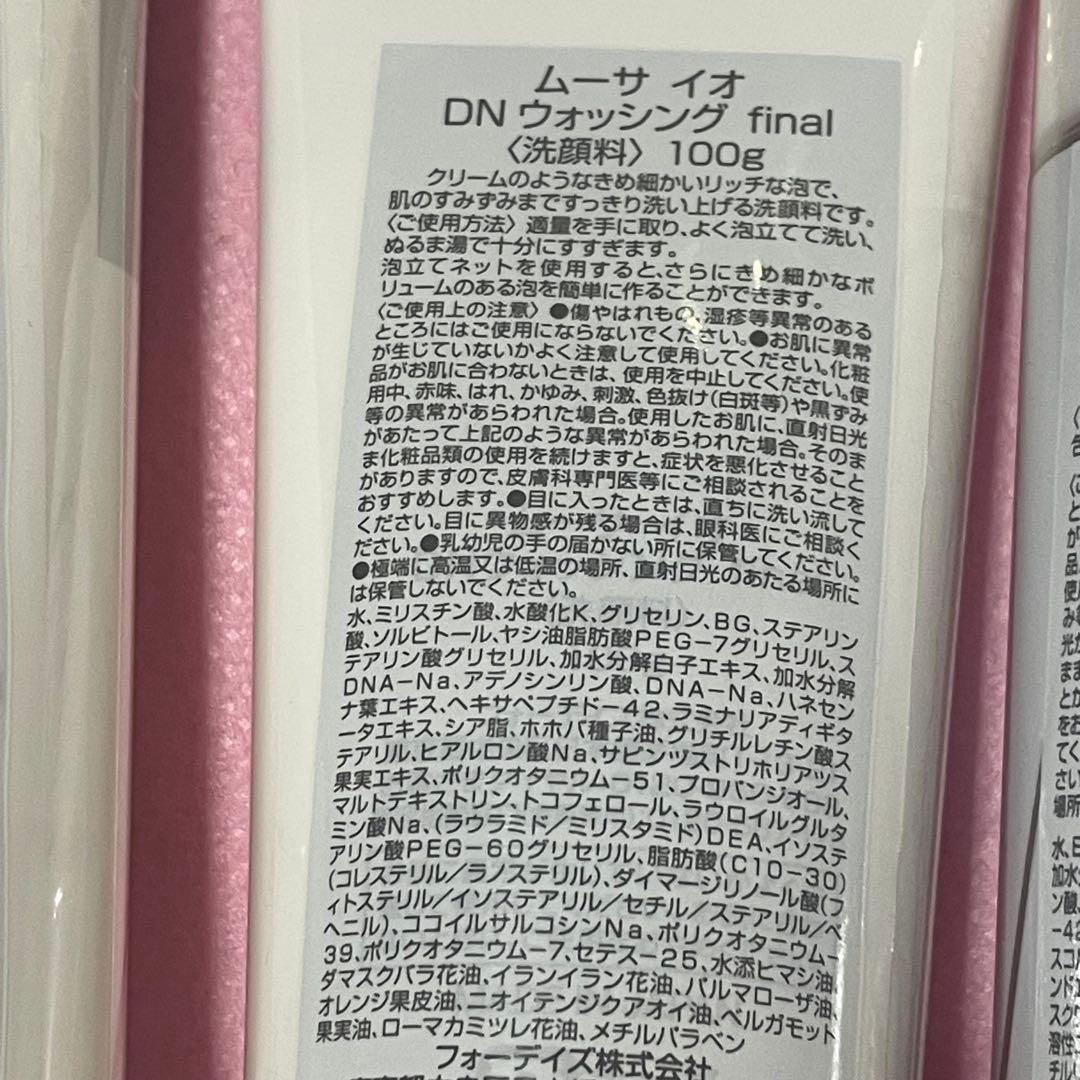 ムーサ イオ
DN ウォッシング final
〈洗顔料〉 100g
クリームのようなきめ細かいリッチな泡で、
肌のすみずみまですっきり洗い上げる洗顔料です。
〈ご使用方法〉適量を手に取り、よく泡立てて洗い、
ぬるま湯で十分にすすぎます。
泡立てネットを使用すると、さらにきめ細かなボ
リュームのある泡を簡単に作ることができます。
〈ご使用上の注意〉●傷やはれもの、湿疹等異常のある
ところにはご使用にならないでください。●お肌に異常
が生じていないかよく注意して使用してください。化粧
品がお肌に合わないときは、使用を中止してください。使
用中、赤味、はれ、かゆみ、刺激、色抜け(白斑等)や黒ずみ
等の異常があらわれた場合。使用したお肌に、直射日光
があたって上記のような異常があらわれた場合。そのま
ま化粧品類の使用を続けますと、症状を悪化させること
がありますので、皮膚科専門医等にご相談されることを
おすすめします。●目に入ったときは、直ちに洗い流して
ください。目に異物感が残る場合は、眼科医にご相談く
ださい。●乳幼児の手の届かない所に保管してください。
●極端に高温又は低温の場所、直射日光のあたる場所に
は保管しないでください。
水、ミリスチン酸、水酸化K、グリセリン、BG、ステアリン
酸、ソルビトール、ヤシ油脂肪酸PEG-7グリセリル、ス
テアリン酸グリセリル、加水分解白子エキス、加水分解
DNA-Na、アデノシンリン酸、DNA-Na、ハネセン
ナ葉エキス、ヘキサペプチド-42、ラミナリアディギタ
ータエキス、シア脂、ホホバ種子油、グリチルレチン酸ス
テアリル、ヒアルロン酸Na、サピンヅストリホリアツス
果実エキス、ポリクオタニウム-51、プロパンジオール、
マルトデキストリン、トコフェロール、ラウロイルグルタ
ミン酸Na、(ラウラミド/ミリスタミド)DEA、イソステ
アリン酸PEG-60グリセリル、脂肪酸(C10-30)
(コレステリル/ラノステリル)、ダイマージリノール酸(フ
ィトステリル/イソステアリル/セチル/ステアリル/ベ
ヘニル)、ココイルサルコシンNa、ポリクオタニウム-
39、ポリクオタニウム-7、セテス-25、水添ヒマシ油、
ダマスクバラ花油、イランイラン花油、パルマローザ油、
オレンジ果皮油、ニオイテンジクアオイ油、ベルガモット
果実油、ローマカミツレ花油、メチルパラベン
フォーデイズ株式会社